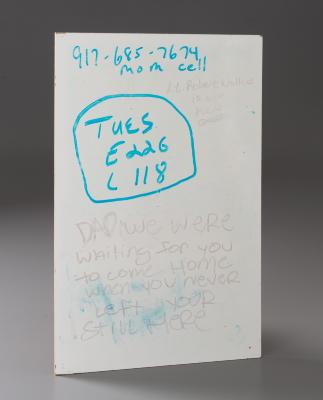 917-685-7674
mom cell
Lt. Robert Wallace
TUES
E226
L 118
DAD WE WERE
waiting for you
to come Home
when you never
Left your
still Here